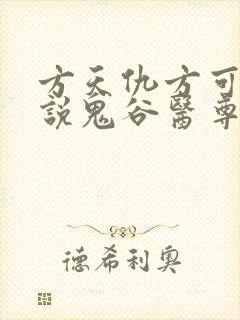 方天仇方可
說鬼谷醫尊
德希利奧